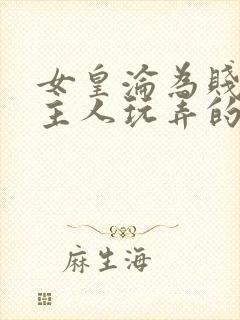 女皇淪為賤
主人玩弄的
麻生海